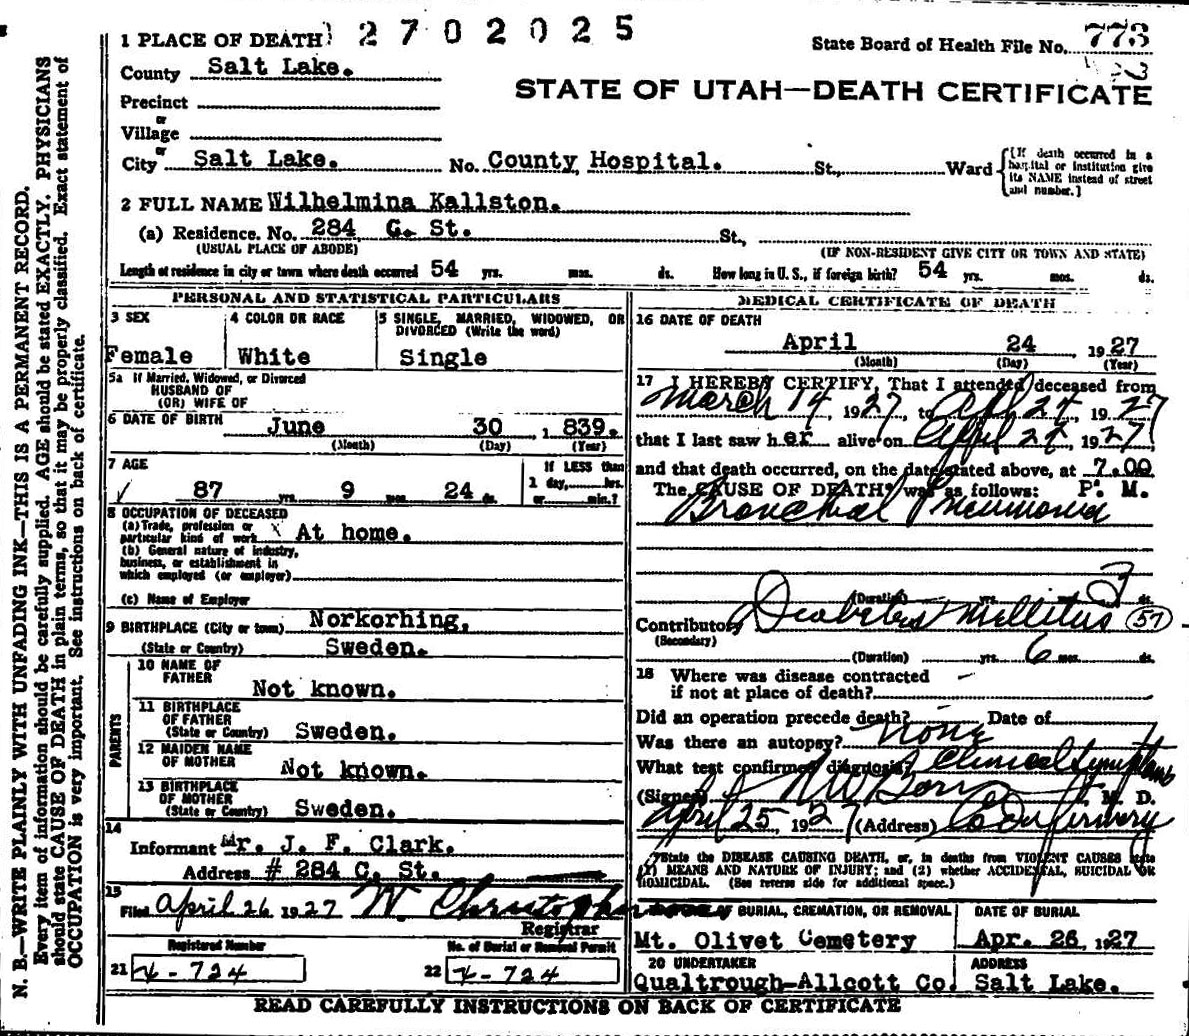 N. B.—WRITE PLAINLY WITH UNFADING INK—THIS IS A PERMANENT RECORD.
Every item of information should be carefully supplied. AGE should be stated EXACTLY. PHYSICIANS
should state CAUSE OF DEATH in plain terms, so that it may be properly classified. Exact statement of
OCCUPATION is very important. See instructions on back of certificate.
2702025
State Board of Health File No. 773
STATE OF UTAH—DEATH CERTIFICATE
1 PLACE OF DEATH
County Salt Lake.
Precinct
or
Village
or
City Salt Lake. No. County Hospital. St., Ward
[If death occurred in a
hospital or institution give
its NAME instead of street
and number.]
2 FULL NAME Wilhelmina Kallston.
(a) Residence. No. 284 C. St. St.,
(USUAL PLACE OF ABODE) (IF NON-RESIDENT GIVE CITY OR TOWN AND STATE)
Length of residence in city or town where death occurred 54 yrs. mos. ds. How long in U. S., if foreign birth? 54 yrs. mos. ds.
PERSONAL AND STATISTICAL PARTICULARS
3 SEX
Female
4 COLOR OR RACE
White
5 SINGLE, MARRIED, WIDOWED, OR
DIVORCED (Write the word)
Single
5a If Married, Widowed, or Divorced
HUSBAND OF
(OR) WIFE OF
6 DATE OF BIRTH June 30, 1839.
(Month) (Day) (Year)
7 AGE
87 yrs 9 mos 24 ds.
If LESS than
1 day, hrs.
or min.?
8 OCCUPATION OF DECEASED
(a) Trade, profession or
particular kind of work At home.
(b) General nature of industry,
business, or establishment in
which employed (or employer)
(c) Name of Employer
9 BIRTHPLACE (City or town) Norkorhing,
(State or Country) Sweden.
PARENTS
10 NAME OF
FATHER
Not known.
11 BIRTHPLACE
OF FATHER
(State or Country) Sweden.
12 MAIDEN NAME
OF MOTHER Not known.
13 BIRTHPLACE
OF MOTHER
(State or Country) Sweden.
14
Informant Mr. J. F. Clark.
Address # 284 C. St.
15
Filed April 26 1927 W. Christopherson
Registrar
Registered Number
21 724
No. of Burial or Removal Permit
22 724
MEDICAL CERTIFICATE OF DEATH
16 DATE OF DEATH
April 24 1927
(Month) (Day) (Year)
17 I HEREBY CERTIFY, That I attended deceased from
March 14, 1927, to April 24, 1927
that I last saw her alive on April 24, 1927,
and that death occurred, on the date stated above, at 7.00
The CAUSE OF DEATH* was as follows: P. M.
Bronchial Pneumonia
(Duration) yrs. mos. 3 ds.
Contributory Diabetes Mellitus 57
(Secondary)
(Duration) yrs. 6 mos. ds.
18 Where was disease contracted
if not at place of death?
Did an operation precede death? Date of
Was there an autopsy? none
What test confirmed diagnosis? Clinical Symptoms
(Signed) M. D.
April 25, 1927 (Address) Co Infirmary
*State the DISEASE CAUSING DEATH, or, in deaths from VIOLENT CAUSES state
(1) MEANS AND NATURE OF INJURY; and (2) whether ACCIDENTAL, SUICIDAL OR
HOMICIDAL. (See reverse side for additional space.)
BURIAL, CREMATION, OR REMOVAL
Mt. Olivet Cemetery
DATE OF BURIAL
Apr. 26, 1927
20 UNDERTAKER
Qualtrough-Allcott Co.
ADDRESS
Salt Lake.
READ CAREFULLY INSTRUCTIONS ON BACK OF CERTIFICATE